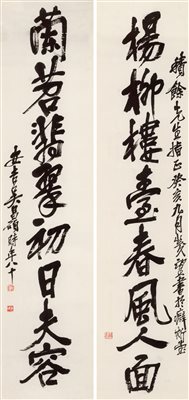 績餘先生指正癸亥九月望書於癖斯堂
楊柳樓臺春風人面
蘭苕翡翠初日夫容
安吉吳昌碩時年八十